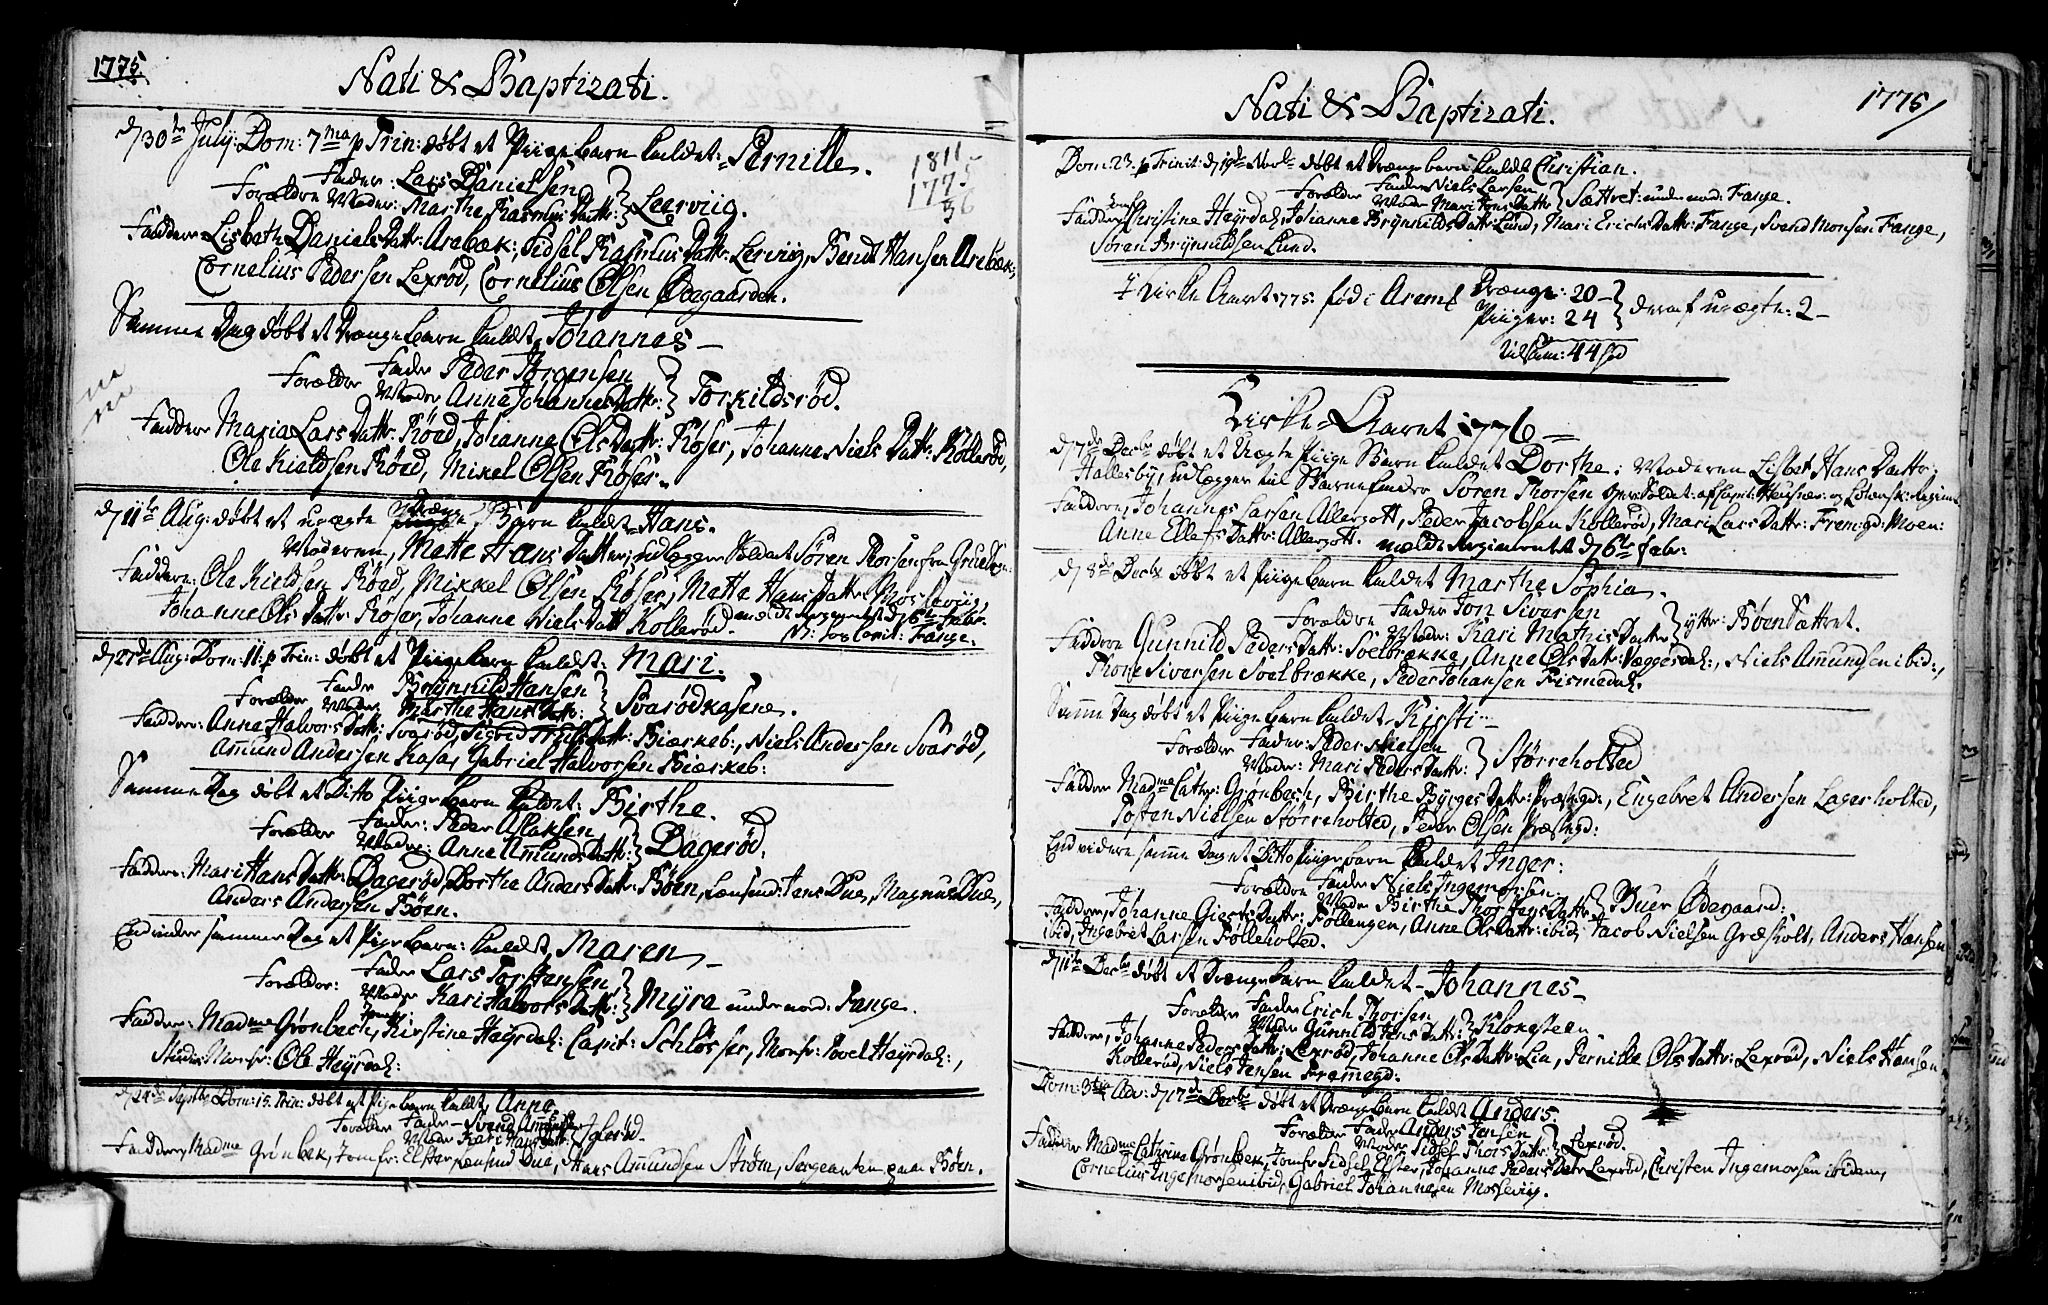 1775
Nati & Baptizati.
d 30te July: Dom: 7ma p Trin: døbt et Piigebarn kaldet: Pernille.
1811
1775
36
Forældre Fader: Lars Danielsen
Moder: Marthe RasmusDattr: } Leerviig.
Faddere: Lisbeth DanielsDattr: Arebæk; Sidsel RasmusDattr: Lerviig, Bendt Hansen Arebæk,
Cornelius Pedersen Lexrød, Cornelius Olsen Ødegaarden.
Samme Dag døbt et Drængebarn kaldet Johannes –
Forælder Fader Peder Jørgensen
Moder Anne JohannesDattr: } Torkildsrød.
Faddere Maria LarsDattr: Röed, Johanne OlsDattr: Röser, Johanne NielsDattr: Kollerød,
Ole Kieldsen Röed, Mikel Olsen Röser.
d 11te Aug: døbt et uægte Drænge Barn kaldet Hans.
Moderen Mette HansDatter, udlægger Soldat Sören Thorsen fra
Faddere: Ole Kieldsen Röed, Mikkel Olsen Röser, Mette HansDattr: Mosseviig,
Johanne OlsDattr Röser, Johanne NielsDattr Kollerød. meldt Regimentet d 6te Febr.
d 27de Aug: Dom: 11: p Trin: døbt et Piigebarn kaldet: Mari.
Forælder Fader Brÿnnild Hansen
Moder Marthe HansDattr: } Svarødkasene.
Faddere: Anne HalvorsDattr: Svarød, Sigrid TruelsDattr: Biærkeb:, Niels Andersen Svarød,
Amund Andersen Kasa, Gabriel Halvorsen Biærkeb:
Samme Dag døbt et Ditto Piigebarn kaldet: Birthe.
Forælder Fader: Peder Aslaksen
Moder: Anne AmundsDattr: } Dagerød.
Faddere: Mari HansDattr: Dagerød, Dorthe AndersDattr: Böen, Lænsmd: Jens Due, Magnus Due,
Anders Andersen Böen.
End videre samme Dag et Pigebarn: kaldet Maren –
Forælder: Fader Lars Torstensen
Moder Kari HalvorsDattr: } Mÿra under nord: Tange.
Faddere: Madme Grønbech, Jomfr: Kirstine Heÿrdal: Capit: Schlösser, Monfr: Povel Heÿrdal:,
Studios: Monfr: Ole Heÿrdal:
d 24de Septbr Dom: 15. Trin: døbt et Pigebarn kaldet, Anne.
Forælder Fader – Svend Amundsen
Moder Kari HansDattr:
Faddere, Madme Grønbek, Jomfr: Elster, Lænsmd Due, Hans Amundsen Strøm, Sergeanten paa Böen.
Nati & Baptizati.
1775
Dom: 23. p Trinit: d 19de Novbr døbt et Drængebarn kaldet Christian.
Forælder Fader Niels Larsen
Moder Mari JensDattr } Sættret: under nord: Tange.
Faddere Jomfr Christine Heÿrdal, Johanne BrÿnnildsDattr Lund, Mari EricksDattr: Tange, Svend Monsen Tange,
Sören Brÿnnildsen Lund.
I Kirke Aaret 1775. født i Aremk Drænge: 20 –
Piiger: 24 } deraf uægte: 2 –
tilsam: 44
Kirke-Aaret 1776 –
d 7de Decbr døbt et Uægte Piige Barn kaldet Dorthe; Moderen Lisbet HansDattr:
Hallesbÿ, udlægger til Barnefader Sören Thorsen
Faddere, Johannes Larsen Allergott, Peder Jacobsen Kollerød, Mari LarsDattr: Frem:gd: Moen:
Anne EllefsDattr: Allergott. meldt Regimentet d 6te Febr:
d 8de Decbr døbt et Piigebarn kaldet Marthe Sophia.
Forældre Fader Jon Siversen
Moder: Kari MathisDatter } ÿttr: BöenSættret.
Faddere Gunnild PedersDattr: Soelbrække, Anne OlsDattr: Væggesdal:, Niels Amundsen ibid:,
Thore Siversen Soelbrække, Peder Johansen Fismedal:
Same Dag døbt et Piigebarn kaldet Kirsti –
Forælder Fader: Peder Nielsen
Moder: Mari PedersDattr: } Störreholted
Faddere Madme Cathr: Grønbech, Birthe BÿrgesDattr: Præstgd:, Engebret Andersen Lagerholted,
Josten Nielsen Störreholted, Peder Olsen Præstgd:
End videre same Dag et Ditto Piigebarn kaldet Inger:
Forældre Fader Niels Ingemorsen
Moder Birthe ThorstensDattr } Buer Ødegaard:
Faddere, Johanne GiertsDattr: Föllengen, Anne OlsDattr: ibid, Jacob Nielsen Græsholt, Anders Hansen
ibid, Ingebret Larsen Fölleholted.
d 11te Decbr døbt et Drængebarn kaldet – Johannes –
Forælder Fader Erich Thorsen
Moder Gunnil JensDattr: } Klokesteen.
Faddere, Johanne PedersDattr: Lexrød, Johanne OlsDattr: Lin, Pernille OlsDattr: Lexrød, Niels Hansen
Kollerød, Niels Jensen Fræmegd:
Dom: 3tia Adv: d 17de Decbr døbt et Drængebarn kaldet Anders
Forælder Fader Anders Jensen
Moder Sidsel ThorsDattr: } Lexrød.
Faddere Madme Catrina Grønbek, Jomfr Sidsel Elster, Johanne PedersDattr Lexrød, Christen Ingemorsen ibidem,
Cornelius Ingemorsen ibid, Gabriel Johannesen Mosseviig.